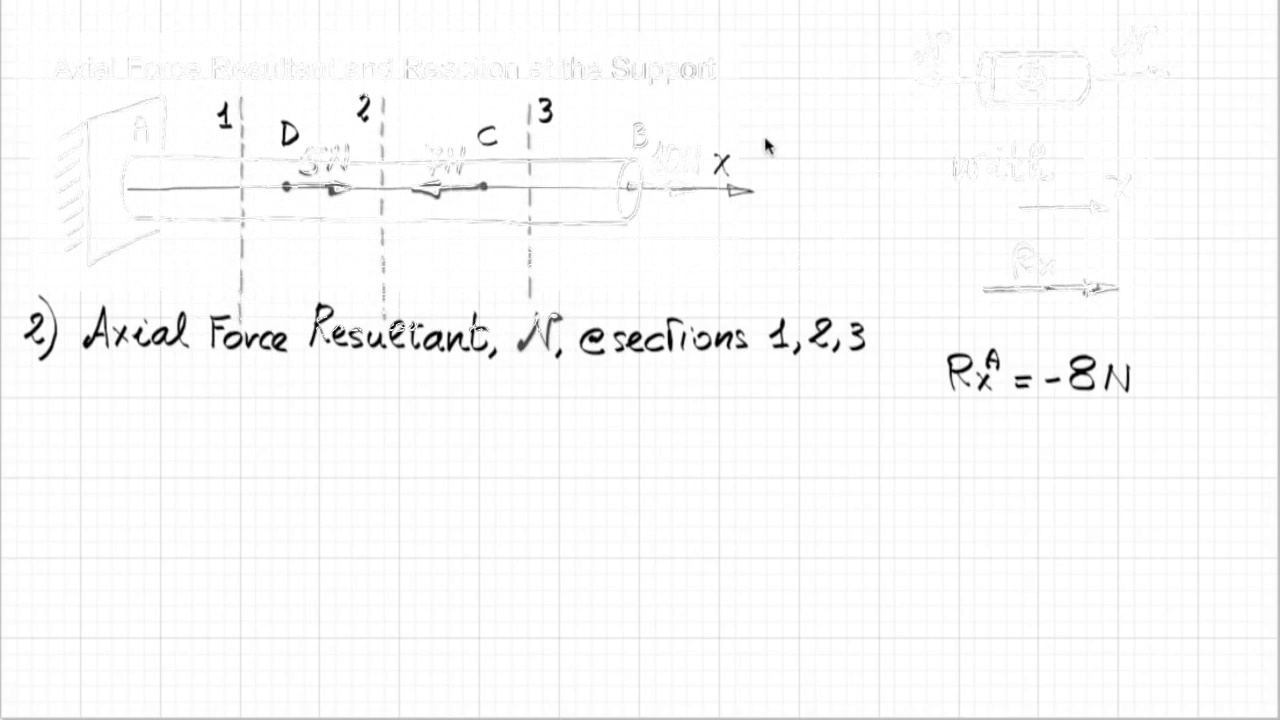 Axial Force Resultant and Reaction at the Support
1 2 3
A D C B
5N 7N 10N X
N N
write
X
Rx
2) Axial Force Resultant, N, @ sections 1, 2, 3
RxA = -8N